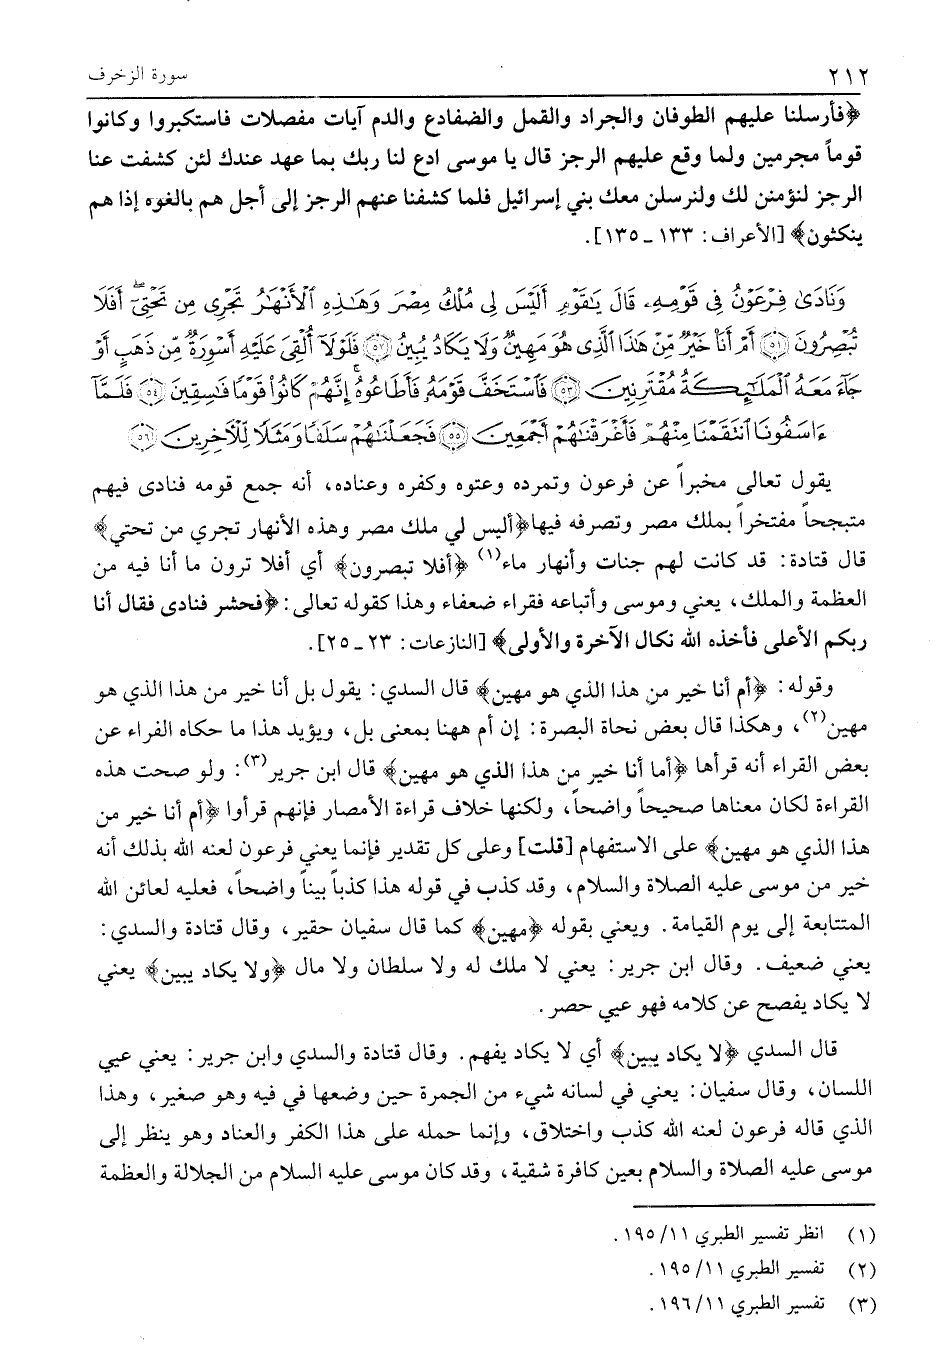 ٢١٢ سورة الزخرف
﴿فأرسلنا عليهم الطوفان والجراد والقمل والضفادع والدم آيات مفصلات فاستكبروا وكانوا
قوماً مجرمين ولما وقع عليهم الرجز قال يا موسى ادع لنا ربك بما عهد عندك لئن كشفت عنا
الرجز لنؤمنن لك ولنرسلن معك بني إسرائيل فلما كشفنا عنهم الرجز إلى أجل هم بالغوه إذا هم
ينكثون﴾ [الأعراف: ١٣٣ ـ ١٣٥].
وَنَادَىٰ فِرْعَوْنُ فِى قَوْمِهِۦ قَالَ يَٰقَوْمِ أَلَيْسَ لِى مُلْكُ مِصْرَ وَهَٰذِهِ ٱلْأَنْهَٰرُ تَجْرِى مِن تَحْتِىٓ ۖ أَفَلَا
تُبْصِرُونَ ﴿٥١﴾ أَمْ أَنَا۠ خَيْرٌ مِّنْ هَٰذَا ٱلَّذِى هُوَ مَهِينٌ وَلَا يَكَادُ يُبِينُ ﴿٥٢﴾ فَلَوْلَآ أُلْقِىَ عَلَيْهِ أَسْوِرَةٌ مِّن ذَهَبٍ أَوْ
جَآءَ مَعَهُ ٱلْمَلَٰٓئِكَةُ مُقْتَرِنِينَ ﴿٥٣﴾ فَٱسْتَخَفَّ قَوْمَهُۥ فَأَطَاعُوهُ ۚ إِنَّهُمْ كَانُوا۟ قَوْمًا فَٰسِقِينَ ﴿٥٤﴾ فَلَمَّآ
ءَاسَفُونَا ٱنتَقَمْنَا مِنْهُمْ فَأَغْرَقْنَٰهُمْ أَجْمَعِينَ ﴿٥٥﴾ فَجَعَلْنَٰهُمْ سَلَفًا وَمَثَلًا لِّلْءَاخِرِينَ ﴿٥٦﴾
يقول تعالى مخبراً عن فرعون وتمرده وعتوه وكفره وعناده، أنه جمع قومه فنادى فيهم
متبجحاً مفتخراً بملك مصر وتصرفه فيها﴿أليس لي ملك مصر وهذه الأنهار تجري من تحتي﴾
قال قتادة: قد كانت لهم جنات وأنهار ماء(١) ﴿أفلا تبصرون﴾ أي أفلا ترون ما أنا فيه من
العظمة والملك، يعني وموسى وأتباعه فقراء ضعفاء وهذا كقوله تعالى: ﴿فحشر فنادى فقال أنا
ربكم الأعلى فأخذه الله نكال الآخرة والأولى﴾ [النازعات: ٢٣ ـ ٢٥].
وقوله: ﴿أم أنا خير من هذا الذي هو مهين﴾ قال السدي: يقول بل أنا خير من هذا الذي هو
مهين(٢)، وهكذا قال بعض نحاة البصرة: إن أم ههنا بمعنى بل، ويؤيد هذا ما حكاه الفراء عن
بعض القراء أنه قرأها ﴿أما أنا خير من هذا الذي هو مهين﴾ قال ابن جرير(٣): ولو صحت هذه
القراءة لكان معناها صحيحاً واضحاً، ولكنها خلاف قراءة الأمصار فإنهم قرأوا ﴿أم أنا خير من
هذا الذي هو مهين﴾ على الاستفهام [قلت] وعلى كل تقدير فإنما يعني فرعون لعنه الله بذلك أنه
خير من موسى عليه الصلاة والسلام، وقد كذب في قوله هذا كذباً بيناً واضحاً، فعليه لعائن الله
المتتابعة إلى يوم القيامة. ويعني بقوله ﴿مهين﴾ كما قال سفيان حقير، وقال قتادة والسدي:
يعني ضعيف. وقال ابن جرير: يعني لا ملك له ولا سلطان ولا مال ﴿ولا يكاد يبين﴾ يعني
لا يكاد يفصح عن كلامه فهو عيي حصر.
قال السدي ﴿لا يكاد يبين﴾ أي لا يكاد يفهم. وقال قتادة والسدي وابن جرير: يعني عيي
اللسان، وقال سفيان: يعني في لسانه شيء من الجمرة حين وضعها في فيه وهو صغير، وهذا
الذي قاله فرعون لعنه الله كذب واختلاق، وإنما حمله على هذا الكفر والعناد وهو ينظر إلى
موسى عليه الصلاة والسلام بعين كافرة شقية، وقد كان موسى عليه السلام من الجلالة والعظمة
(١) انظر تفسير الطبري ١١/ ١٩٥.
(٢) تفسير الطبري ١١/ ١٩٥.
(٣) تفسير الطبري ١١/ ١٩٦.